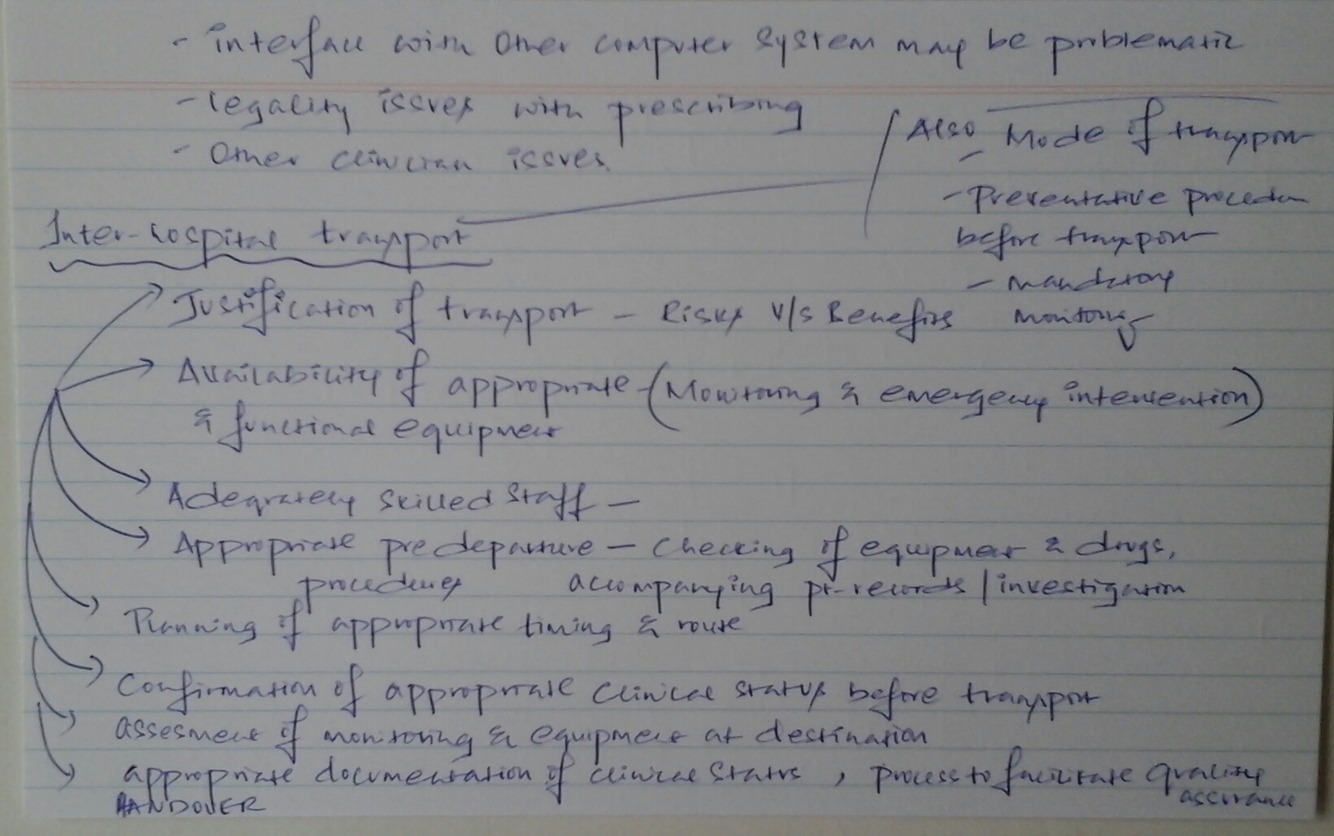 - interface with other computer system may be problematic
- legality issues with prescribing
- Other clinician issues.
Also - Mode of transport
- Preventative procedure
before transport
- mandatory
monitoring
Inter-hospital transport
Justification of transport - Risks V/s Benefits
Availability of appropriate - (Monitoring & emergency intervention)
& functional equipment
Adequately skilled staff -
Appropriate predeparture - checking of equipment & drugs,
procedures accompanying pt-records / investigation
Planning of appropriate timing & route
Confirmation of appropriate clinical status before transport
assesment of monitoring & equipment at destination
appropriate documentation of clinical status, process to facilitate quality
HANDOVER assurance